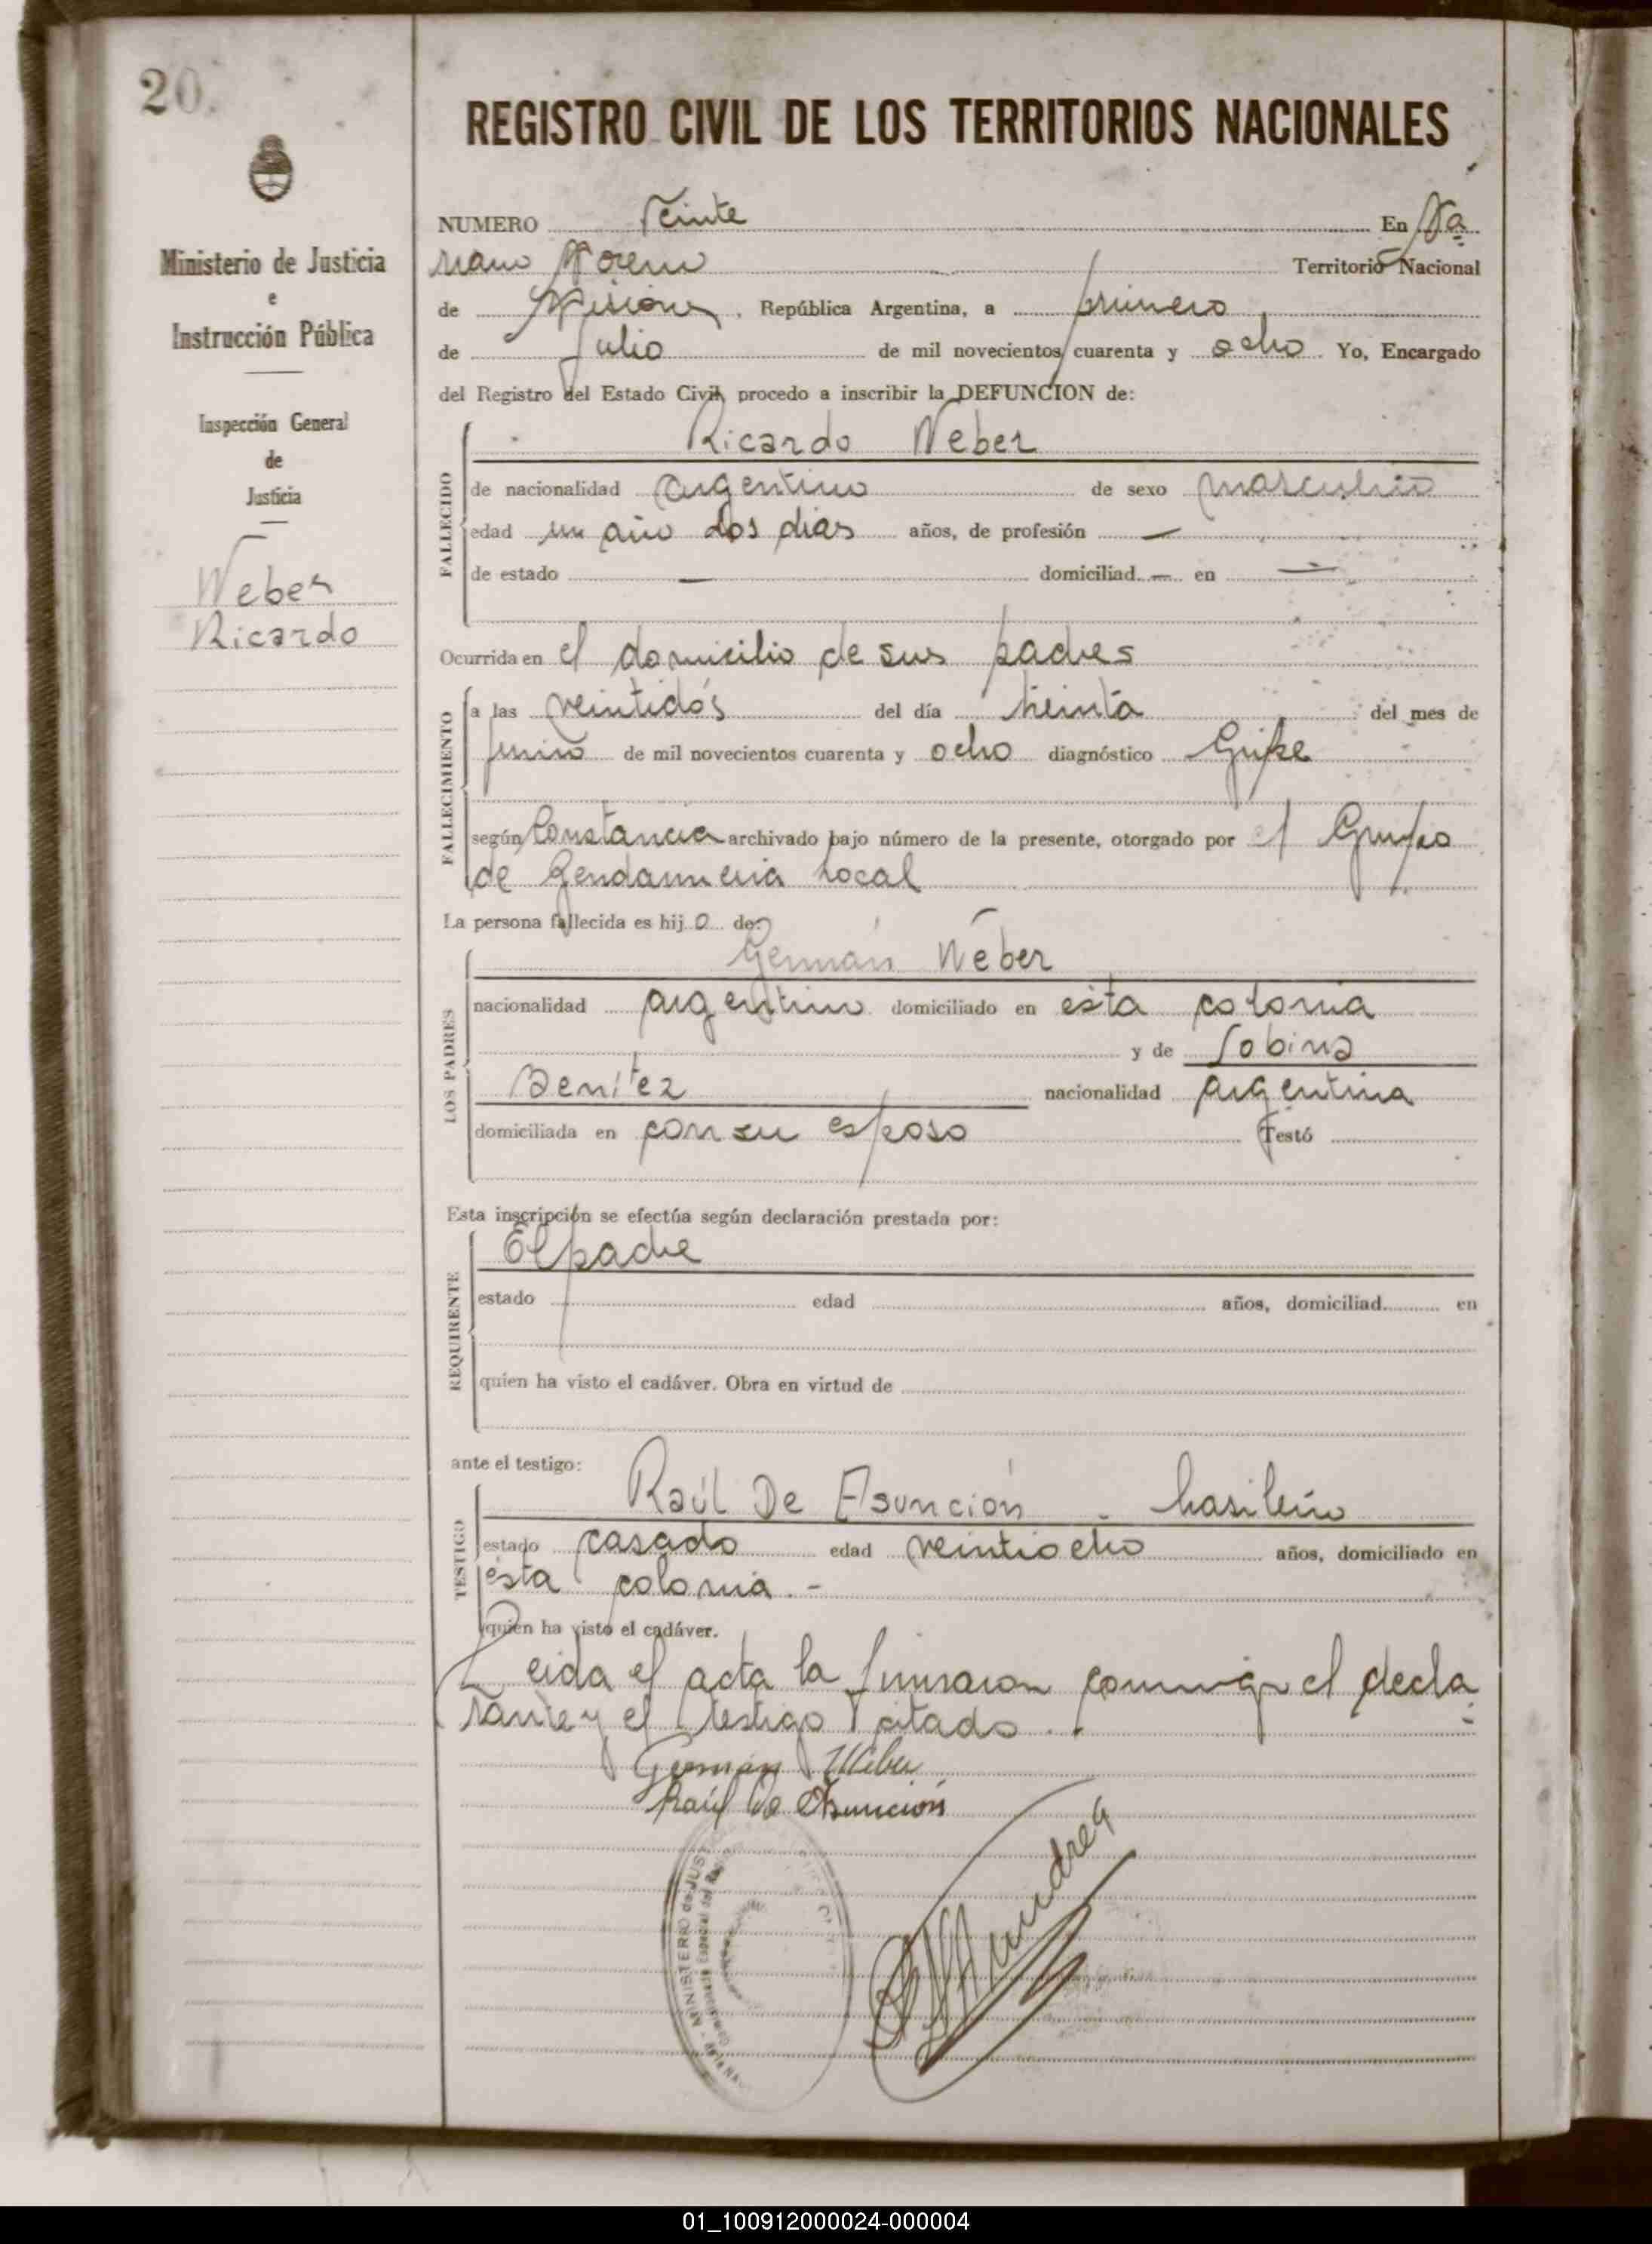 20.
REGISTRO CIVIL DE LOS TERRITORIOS NACIONALES
Ministerio de Justicia
e
Instrucción Pública
Inspección General
de
Justicia
Weber
Ricardo
NUMERO Veinte En Ma
riano Moreno Territorio Nacional
de Misiones, República Argentina, a primero
de Julio de mil novecientos cuarenta y ocho. Yo, Encargado
del Registro del Estado Civil, procedo a inscribir la DEFUNCION de:
FALLECIDO
Ricardo Weber
de nacionalidad argentino de sexo masculino
edad un año dos dias años, de profesión —
de estado — domiciliad — en —
Ocurrida en el domicilio de sus padres
FALLECIMIENTO
a las veintidós del día treinta del mes de
junio de mil novecientos cuarenta y ocho diagnóstico Gripe
según Constancia archivado bajo número de la presente, otorgado por el Grupo
de Gendarmeria Local
La persona fallecida es hijo de:
LOS PADRES
Germán Weber
nacionalidad argentino domiciliado en esta colonia
y de Sobina
Benítez nacionalidad argentina
domiciliada en con su esposo Testó
Esta inscripción se efectúa según declaración prestada por:
REQUIRENTE
El padre
estado edad años, domiciliad en
quien ha visto el cadáver. Obra en virtud de
ante el testigo:
TESTIGO
Raúl De Asunción - brasileño
estado casado edad veintiocho años, domiciliado en
ésta colonia.-
quien ha visto el cadáver.
Leida el acta la firmaron conmigo el decla
rante y el testigo citado.-
Germán Weber
Raúl De Asunción
MINISTERIO de JUS
01_100912000024-000004